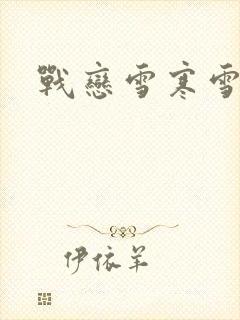 戰戀雪寒雪
伊依羊